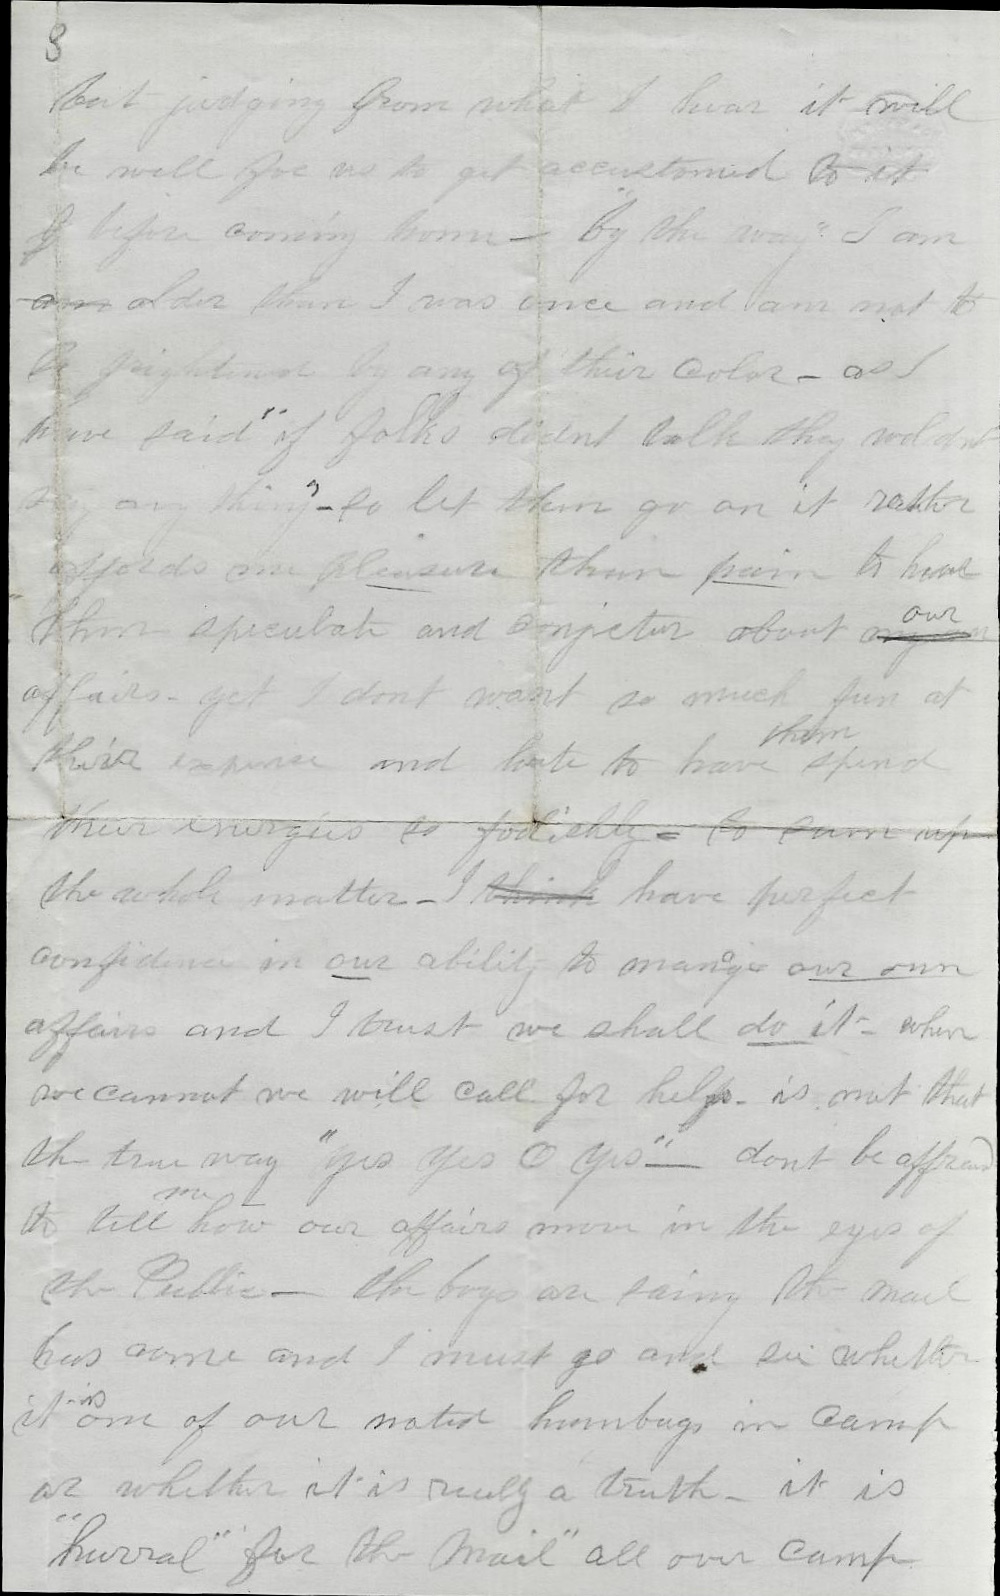 3
But judging from what I hear it will
be well for us to get accustomed to it
before coming home — "By the way" I am
am older than I was once and am not to
be frightened by any of their color — as I
have said "if folks didnt talk they woldnt
say any thing" — so let them go on it rather
affords me pleasure than pain to hear
them speculate and conjetur about our
affairs — yet I dont want so much fun at
their expense and hate to have them spend
their energies so foolishly = to sum up
the whole matter — I think have perfect
confidence in our ability to manage our own
affairs and I trust we shall do it — when
we cannot we will call for help — is not that
the true way "yes yes O yes" — dont be affraid
to tell me how our affairs move in the eyes of
the Public — the boys are saing the mail
has come and I must go and see whether
it is one of our noted humbugs in camp
or whether it is really a truth — it is
"hurral" for the Mail" all over camp